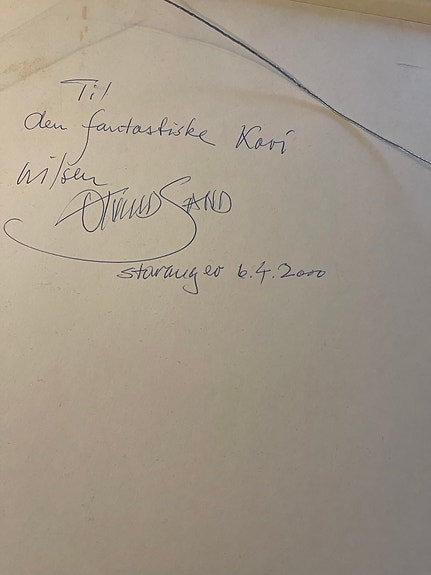 Til
den fantastiske Kari
Nilsen
ØIVIND SAND
Stavanger 6.4.2000